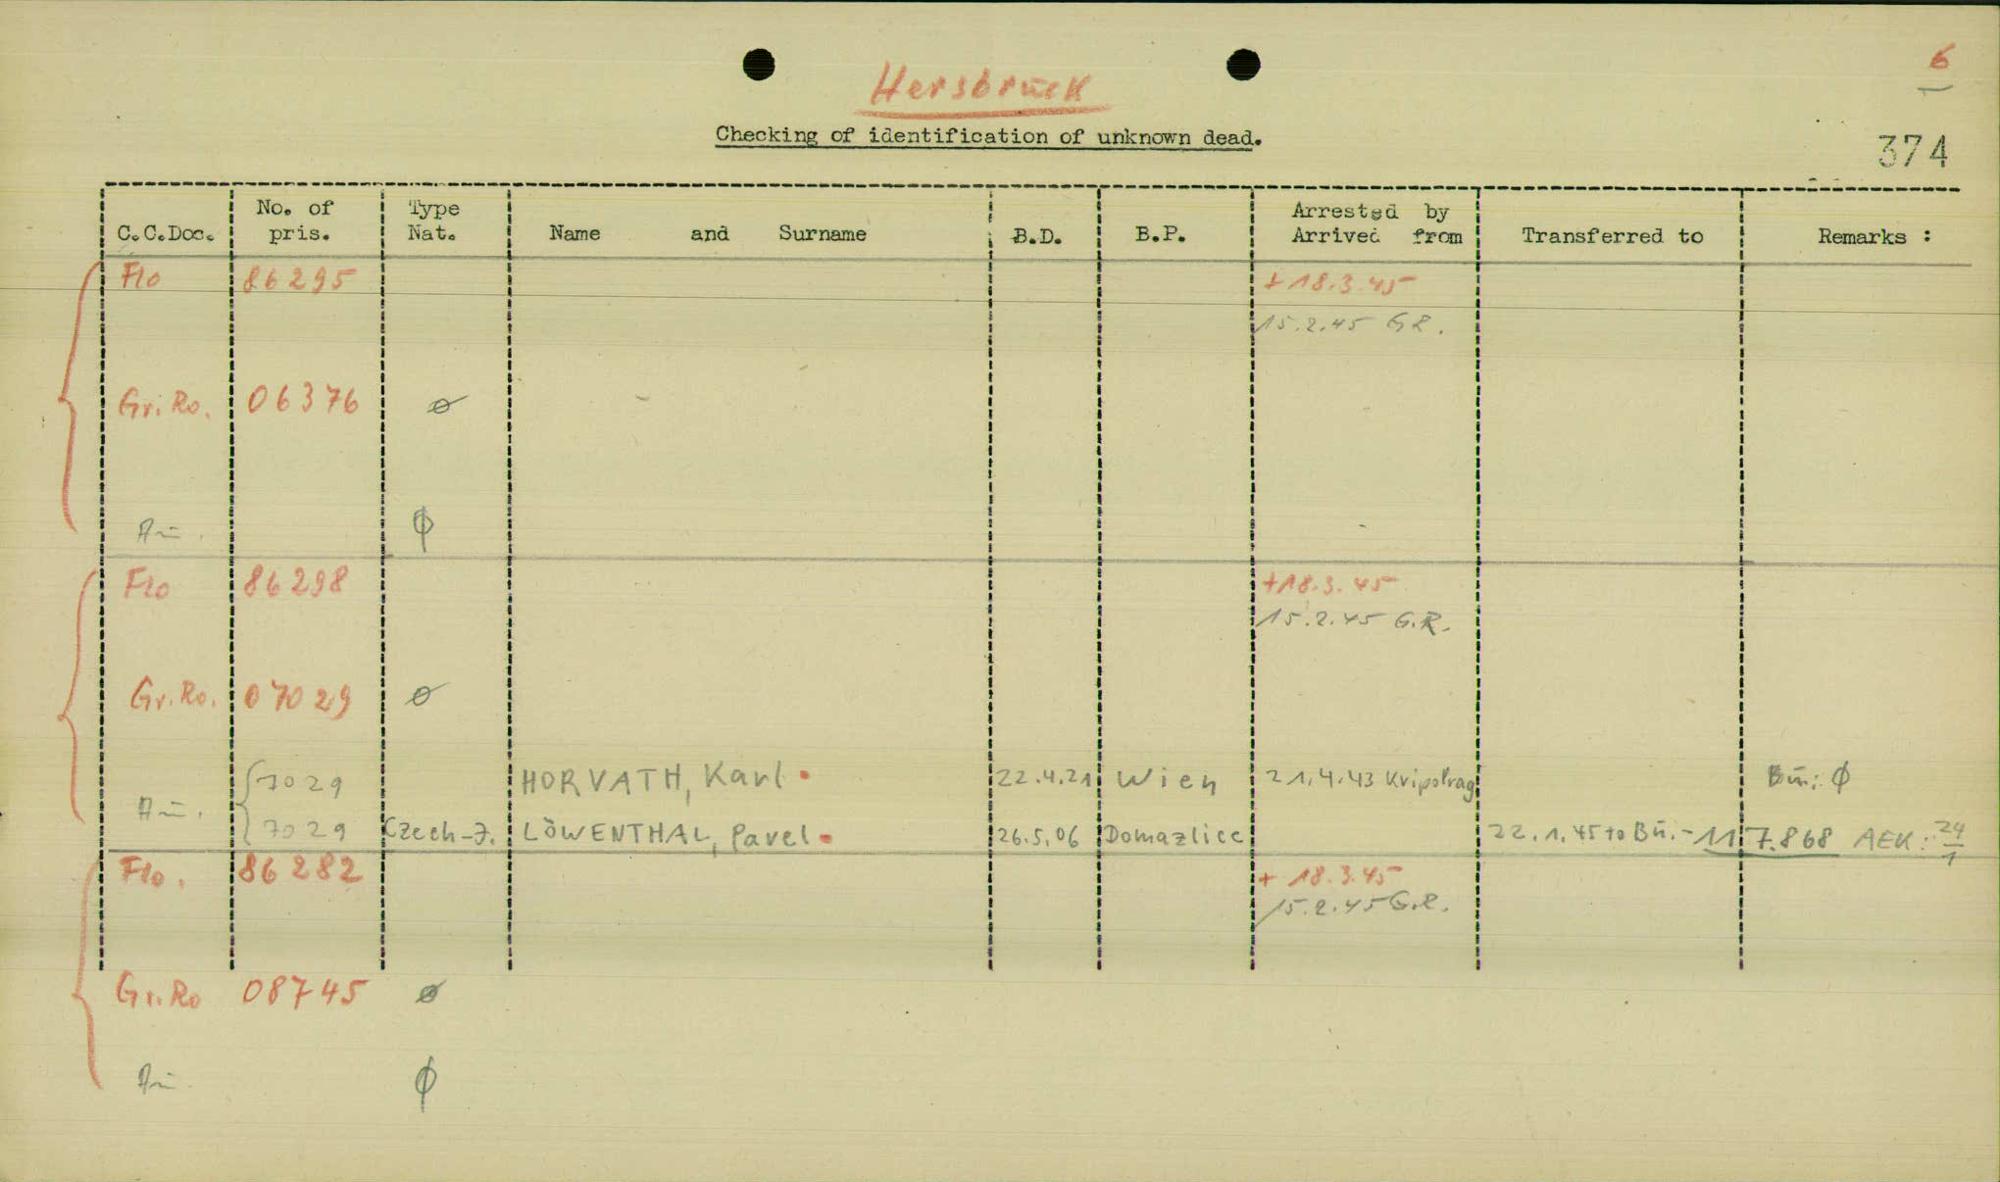 6
Hersbruck
Checking of identification of unknown dead.
374
C.C.Doc. No. of pris. Type Nat. Name and Surname B.D. B.P. Arrested by Arrived from Transferred to Remarks :
Flo 86295 + 18.3.45
15.2.45 G.R.
Gr.Ro. 06376 ø
Au. φ
Flo 86298 +18.3.45
15.2.45 G.R.
Gr.Ro. 07029 ø
7029 HORVATH, Karl 22.4.21 Wien 21.4.43 Kripo Prag Bu: φ
Au.
7029 Czech-J. LÖWENTHAL, Pavel 26.5.06 Domazlice 22.1.45 to Bu.- 117.868 AEK: 24/1
Flo. 86282 + 18.3.45
15.2.45 G.R.
Gr.Ro 08745 ø
Au φ